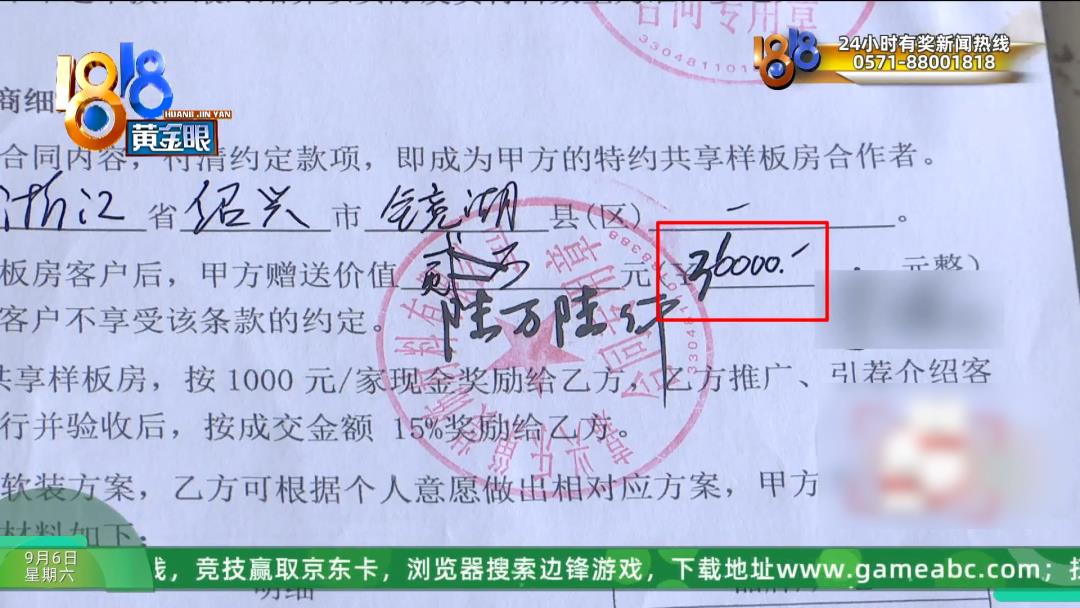 24小时有奖新闻热线
0571-88001818
合同专用章
33048110
1818
HUANG JIN YAN
黄金眼
商细
合同内容，付清约定款项，即成为甲方的特约共享样板房合作者。
浙江省绍兴市镜湖县(区)一。
板房客户后，甲方赠送价值 元(¥36000.- 元整)
陆万陆仟
客户不享受该条款的约定。
共享样板房，按1000元/家现金奖励给乙方，乙方推广、引荐介绍客
行并验收后，按成交金额 15%奖励给乙方。
合同专用章
软装方案，乙方可根据个人意愿做出相对应方案，甲方
材料如下：
9月6日
星期六
线，竞技赢取京东卡，浏览器搜索边锋游戏，下载地址www.gameabc.com；
明细